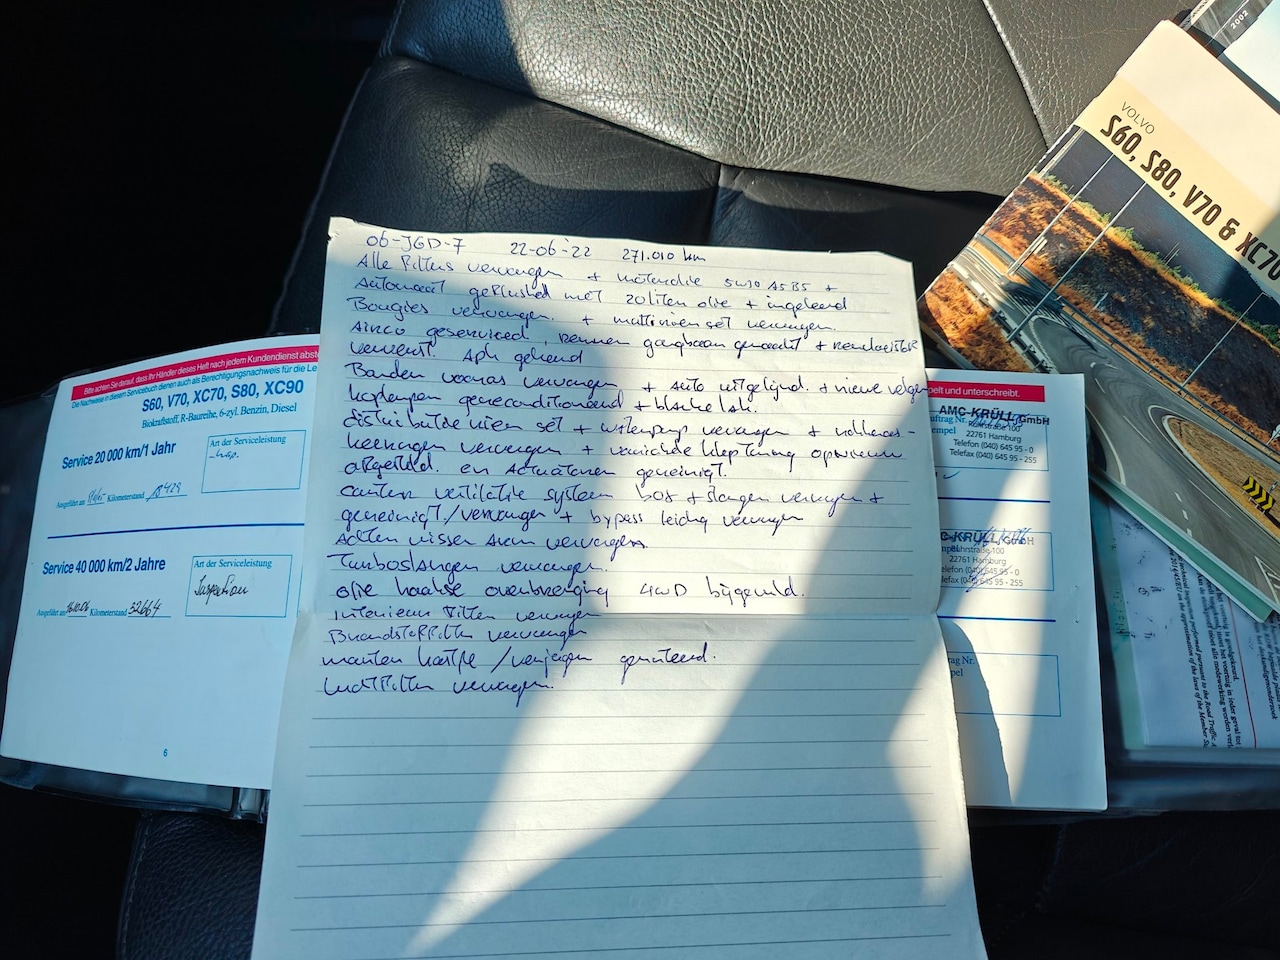 06-JGD-7 22-06-'22 271.010 km
Alle Filters vervangen + motorolie 5w30 A5B5 +
Automaat geflushed met 20 liter olie + ingeleerd
Bougies vervangen. + multiriem set vervangen.
Airco geserviced, remmen gangbaar gemaakt +
ververst. Apk gekeurd
Banden vooras vervangen + auto uitgelijnd. + nieuwe velgen
koplampen gereconditioneerd +
distributieriem set + waterpomp vervangen +
keerringen vervangen + variabele kleptiming opnieuw
afgesteld. en Actuatoren gereinigt.
carter ventilatie systeem box + slangen vervangen +
gereinigt/vervangen + bypass leiding vervangen
Achter wisser arm vervangen
Turboslangen vervangen.
olie haakse overbrenging 4WD bijgevuld.
Interieur Filter vervangen
Brandstoffilter vervangen
marter
Luchtfilter vervangen.
Bitte achten Sie darauf, dass Ihr Händler dieses Heft nach jedem Kundendienst
Die Nachweise in diesem Servicebuch dienen auch als Berechtigungsnachweis für die
S60, V70, XC70, S80, XC90
Biokraftstoff, R-Baureihe, 6-zyl. Benzin, Diesel
Service 20 000 km/1 Jahr
Art der Serviceleistung
Ausgeführt am Kilometerstand
Service 40 000 km/2 Jahre
Art der Serviceleistung
Inspektion
Ausgeführt am Kilometerstand 52664
6
pelt und unterschreibt.
AMC-KRÜLL GmbH
Ruhrstraße 100
22761 Hamburg
Telefon (040) 645 95 - 0
Telefax (040) 645 95 - 255
KRÜLL GmbH
Ruhrstraße 100
22761 Hamburg
elefon (040) 645 95 - 0
elefax (040) 645 95 - 255
rag Nr.
pel
2002
VOLVO
S60, S80, V70 & XC70